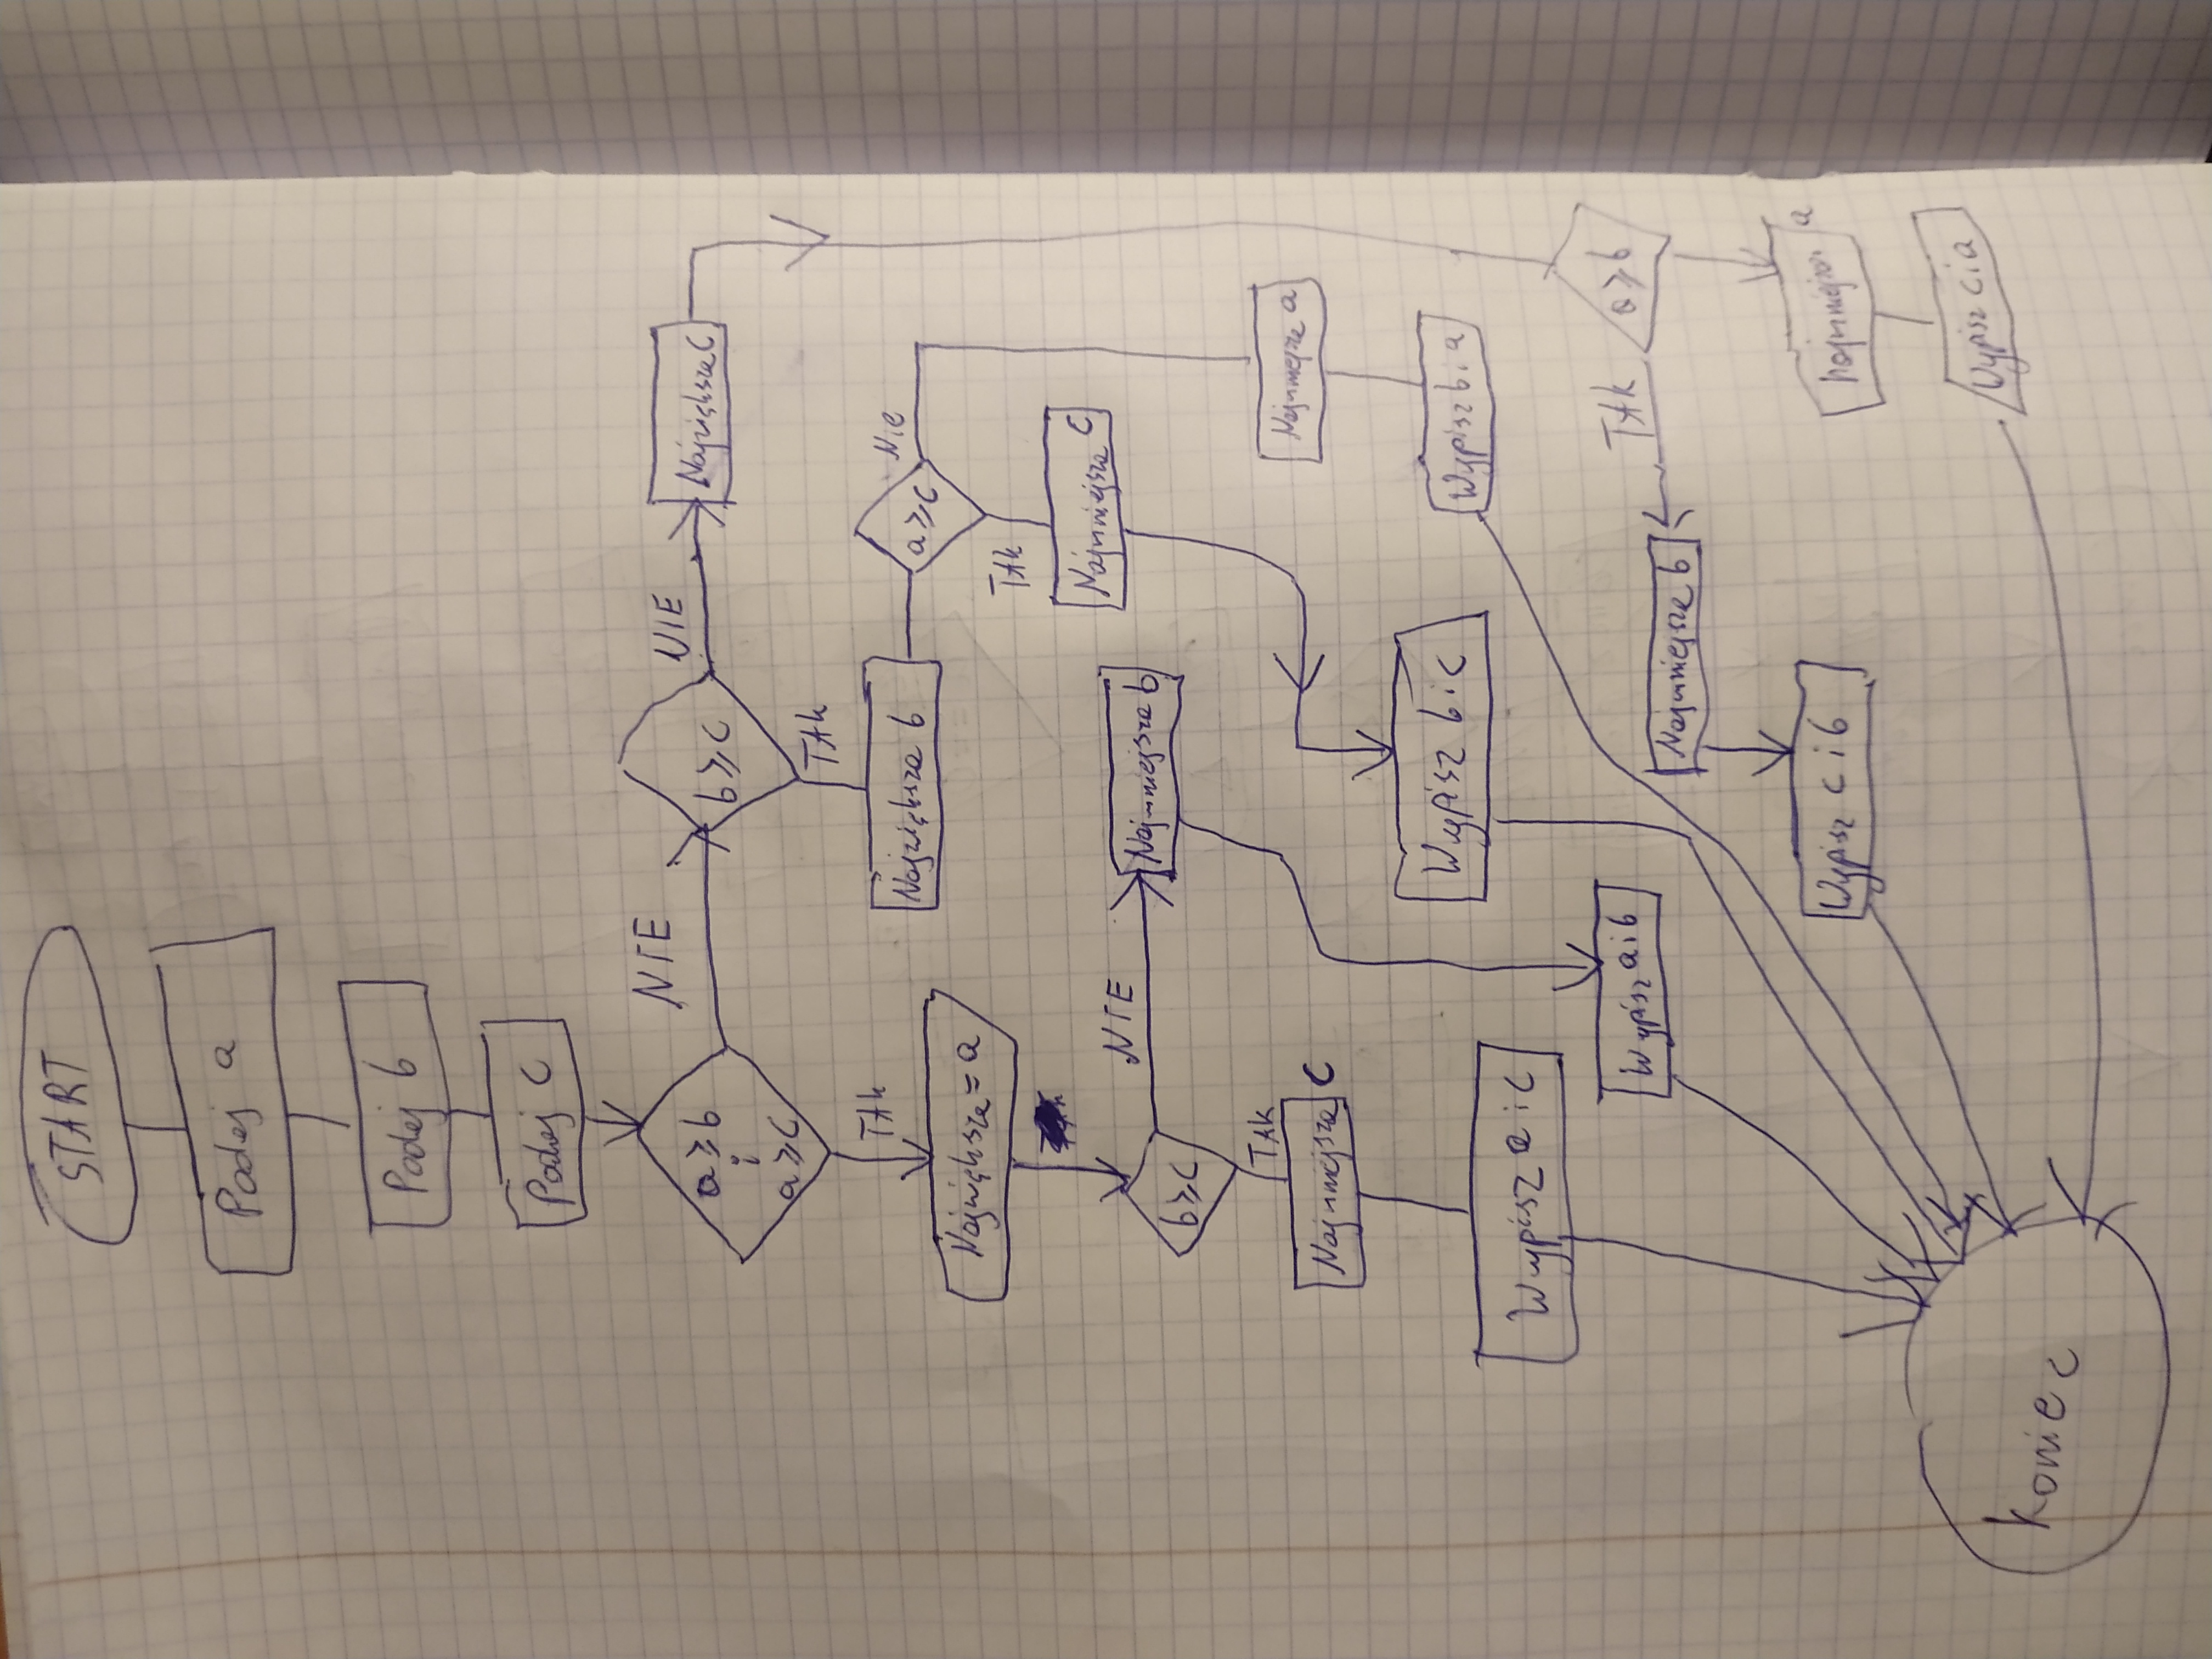 START
Podaj a
Podaj b
Podaj c
a ≥ b
i
a ≥ c
NIE
b ≥ c
NIE
Największa c
TAK
TAK
Największa b
a ≥ c
Nie
Największa = a
TAK
Najmniejsza c
NIE
Najmniejsza b
b ≥ c
TAK
Najmniejsza a
Najmniejsza c
Wypisz b i c
Wypisz b i a
Wypisz a i c
Wypisz a i b
TAK
a ≥ b
Najmniejsza b
Wypisz c i b
najmniejsza a
Wypisz c i a
Koniec